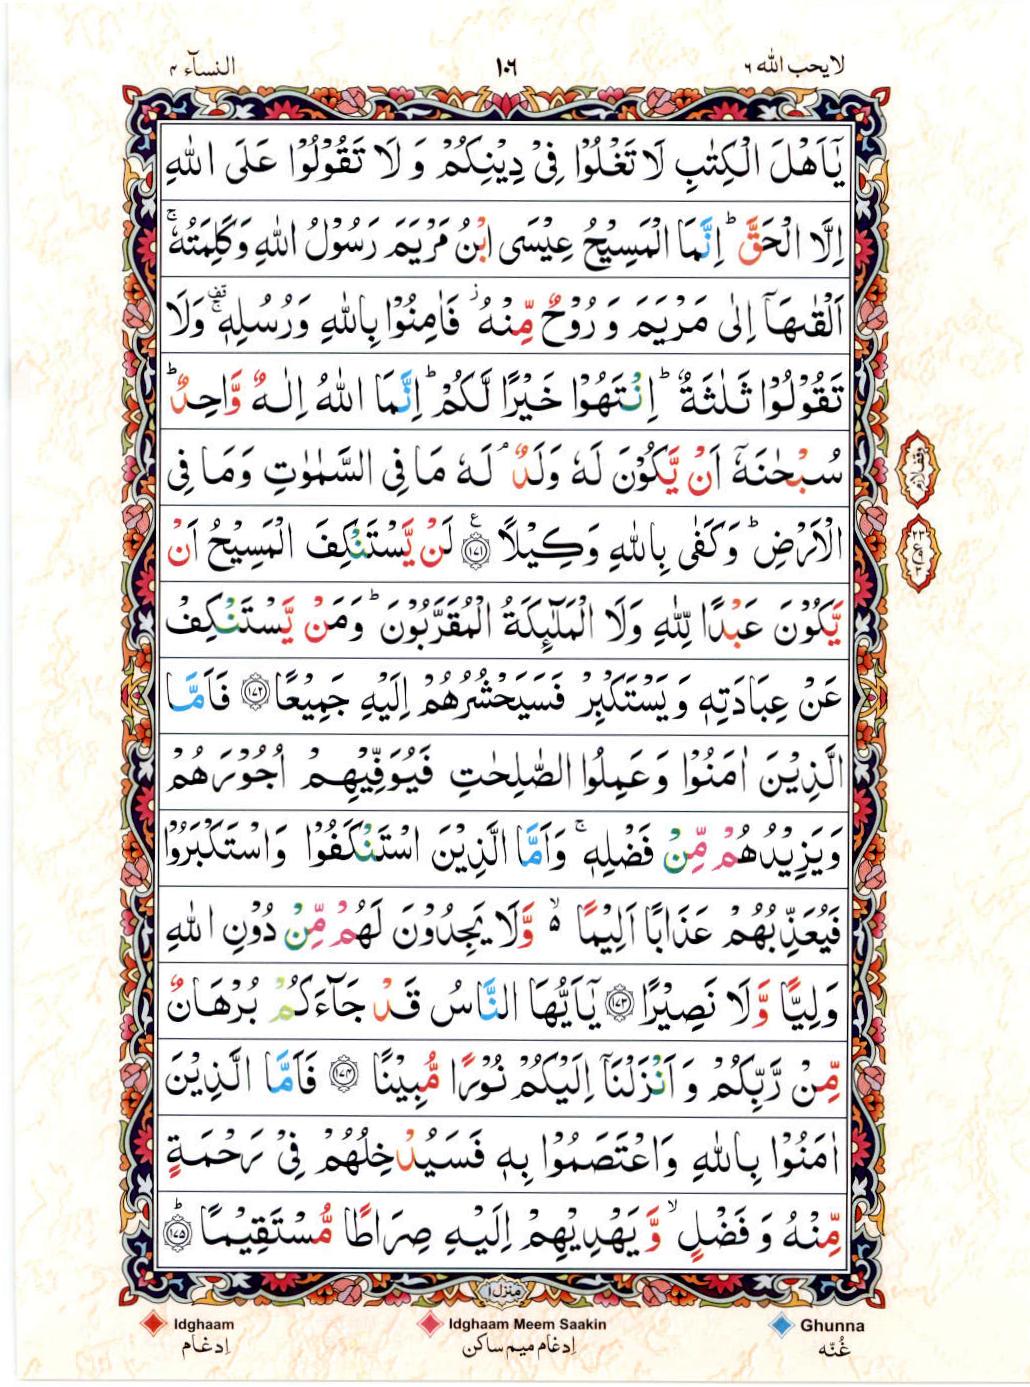 لا یحب الله ٦
١٠٦
النسآء ٤
یٰۤاَهْلَ الْكِتٰبِ لَا تَغْلُوْا فِیْ دِیْنِكُمْ وَ لَا تَقُوْلُوْا عَلَی اللّٰهِ
اِلَّا الْحَقَّ ؕ اِنَّمَا الْمَسِیْحُ عِیْسَی ابْنُ مَرْیَمَ رَسُوْلُ اللّٰهِ وَ كَلِمَتُهٗ ۚ
اَلْقٰىهَاۤ اِلٰی مَرْیَمَ وَ رُوْحٌ مِّنْهُ ؗ فَاٰمِنُوْا بِاللّٰهِ وَ رُسُلِهٖ ۚ۫ وَلَا
تَقُوْلُوْا ثَلٰثَةٌ ؕ اِنْتَهُوْا خَیْرًا لَّكُمْ ؕ اِنَّمَا اللّٰهُ اِلٰهٌ وَّاحِدٌ ؕ
سُبْحٰنَهٗۤ اَنْ یَّكُوْنَ لَهٗ وَلَدٌ ۘ لَهٗ مَا فِی السَّمٰوٰتِ وَمَا فِی
الْاَرْضِ ؕ وَ كَفٰی بِاللّٰهِ وَكِیْلًا ۝۱۷۱ ع لَنْ یَّسْتَنْكِفَ الْمَسِیْحُ اَنْ
یَّكُوْنَ عَبْدًا لِّلّٰهِ وَلَا الْمَلٰٓىِٕكَةُ الْمُقَرَّبُوْنَ ؕ وَمَنْ یَّسْتَنْكِفْ
عَنْ عِبَادَتِهٖ وَ یَسْتَكْبِرْ فَسَیَحْشُرُهُمْ اِلَیْهِ جَمِیْعًا ۝۱۷۲ فَاَمَّا
الَّذِیْنَ اٰمَنُوْا وَ عَمِلُوا الصّٰلِحٰتِ فَیُوَفِّیْهِمْ اُجُوْرَهُمْ
وَ یَزِیْدُهُمْ مِّنْ فَضْلِهٖ ۚ وَاَمَّا الَّذِیْنَ اسْتَنْكَفُوْا وَاسْتَكْبَرُوْا
فَیُعَذِّبُهُمْ عَذَابًا اَلِیْمًا ۙ۬ وَّلَا یَجِدُوْنَ لَهُمْ مِّنْ دُوْنِ اللّٰهِ
وَلِیًّا وَّلَا نَصِیْرًا ۝۱۷۳ یٰۤاَیُّهَا النَّاسُ قَدْ جَآءَكُمْ بُرْهَانٌ
مِّنْ رَّبِّكُمْ وَ اَنْزَلْنَاۤ اِلَیْكُمْ نُوْرًا مُّبِیْنًا ۝۱۷۴ فَاَمَّا الَّذِیْنَ
اٰمَنُوْا بِاللّٰهِ وَاعْتَصَمُوْا بِهٖ فَسَیُدْخِلُهُمْ فِیْ رَحْمَةٍ
مِّنْهُ وَ فَضْلٍ ۙ وَّ یَهْدِیْهِمْ اِلَیْهِ صِرَاطًا مُّسْتَقِیْمًا ؕ۝۱۷۵
وقف لازم
منزل ١
Idghaam
Idghaam Meem Saakin
Ghunna
اِدغام
اِدغام میم ساکن
غُنّه